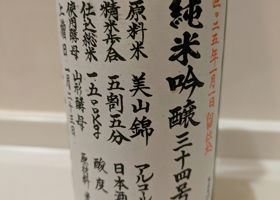 二五年一月一日
純米吟醸三十四号
原料米 美山錦 アルコール
精米歩合 五割五分 日本酒
仕込総米 一五〇〇kg 酸度
使用酵母 山形酵母 原材料
二十三日